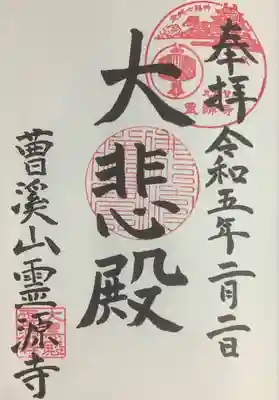 奉拝 令和五年二月二日
大悲殿
曹溪山霊源寺